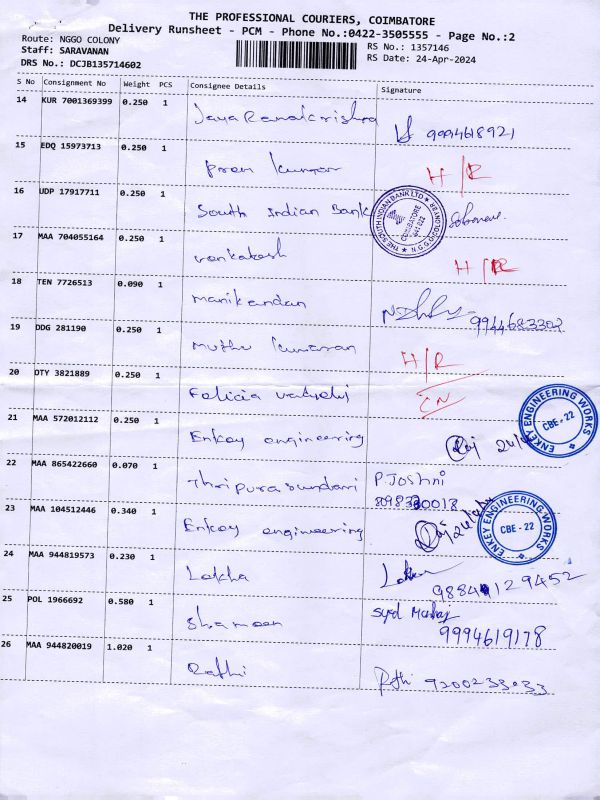 THE PROFESSIONAL COURIERS, COIMBATORE
Delivery Runsheet - PCM - Phone No.:0422-3505555 - Page No.:2
Route: NGGO COLONY
RS No.: 1357146
Staff: SARAVANAN
RS Date: 24-Apr-2024
DRS No.: DCJB135714602
S No Consignment No Weight PCS Consignee Details Signature
14 KUR 7001369399 0.250 1 Jaya Ramakrishna 9994618921
15 EDQ 15973713 0.250 1 prem kumar H/R
16 UDP 17917711 0.250 1 South Indian Bank
THE SOUTH INDIAN BANK LTD COIMBATORE 641 022
17 MAA 704055164 0.250 1 venkatesh H/R
18 TEN 7726513 0.090 1 manikandan 9944683302
19 DDG 281190 0.250 1 muthu kumaran H/R
20 OTY 3821889 0.250 1 Felicia
21 MAA 572012112 0.250 1 Enkey engineering
ENKEY ENGINEERING WORKS CBE - 22
22 MAA 865422660 0.070 1 Thripura sundari P. Joshni
23 MAA 104512446 0.340 1 Enkey engineering
ENKEY ENGINEERING WORKS CBE - 22
24 MAA 944819573 0.230 1 Lekha
25 POL 1966692 0.580 1 shameen syed
9994619178
26 MAA 944820019 1.020 1 Rathi 9200233033